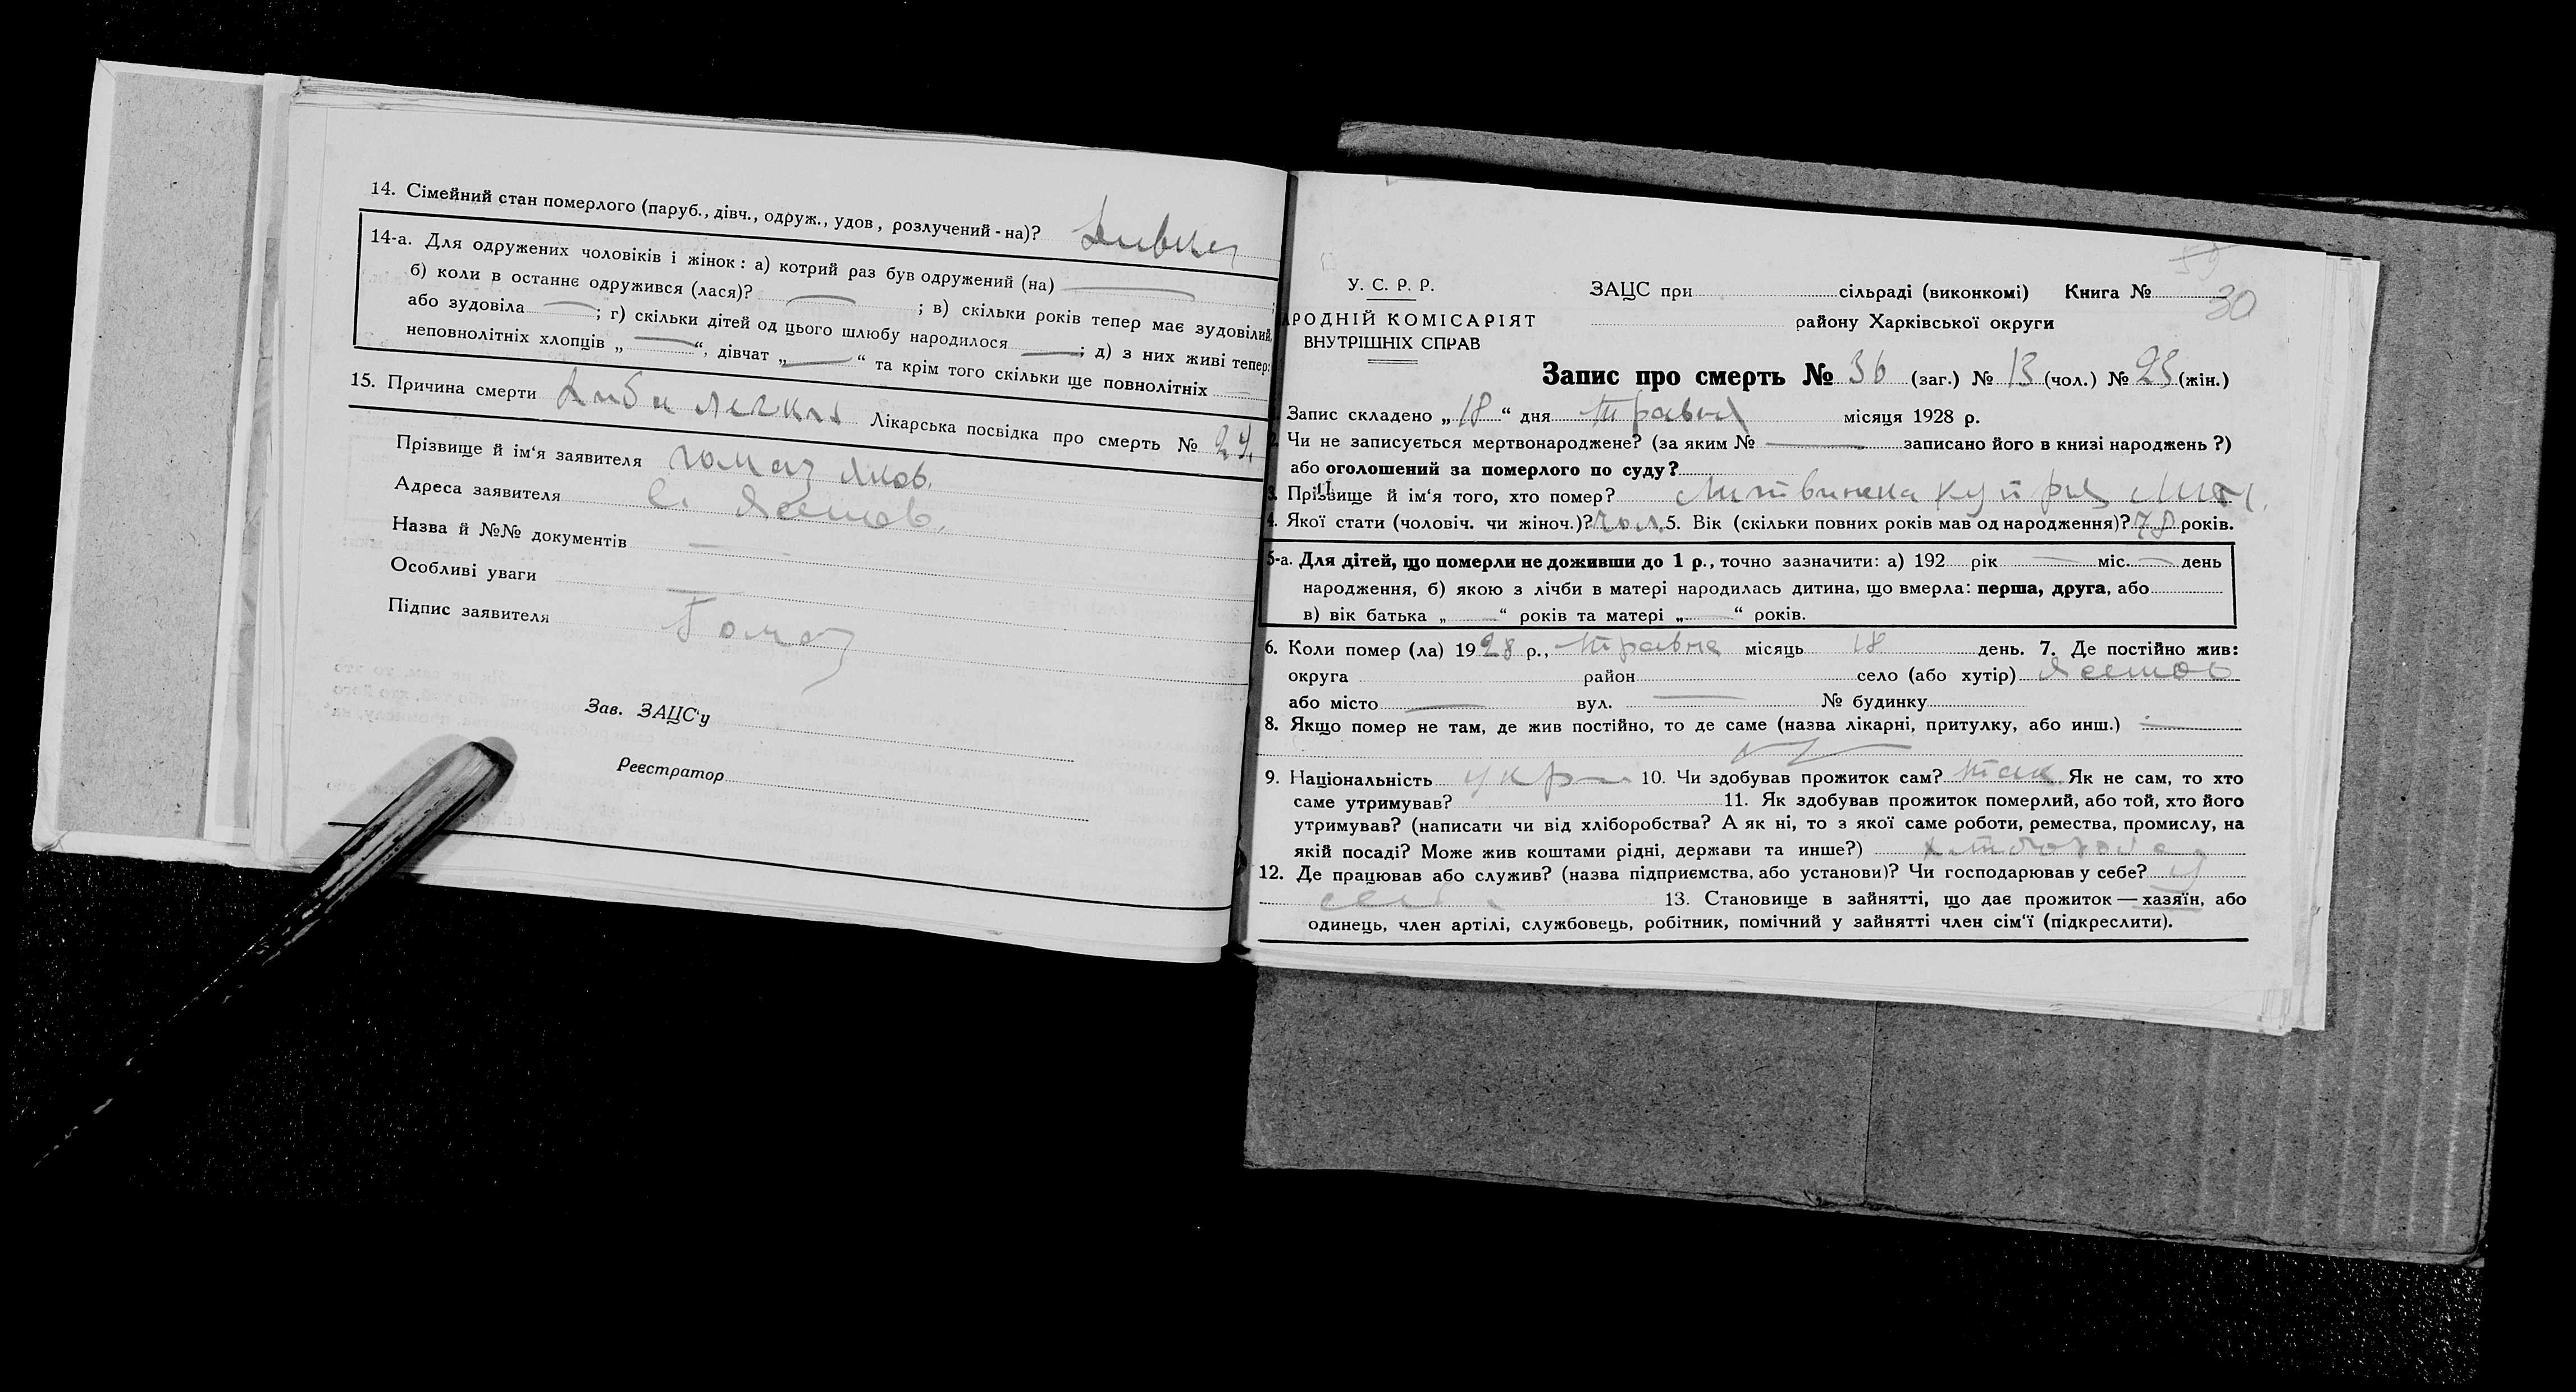 14. Сімейний стан померлого (паруб., дівч., одруж., удов, розлучений - на)?
14-а. Для одружених чоловіків і жінок : а) котрий раз був одружений (на)
б) коли в останнє одружився (лася)? ; в) скільки років тепер має зудовілий,
або зудовіла ; г) скільки дітей од цього шлюбу народилося ; д) з них живі тепер:
неповнолітніх хлопців „ “, дівчат „ “ та крім того скільки ще повнолітніх
15. Причина смерти Лікарська посвідка про смерть № 24.
Прізвище й ім‘я заявителя Гомаз Яков.
Адреса заявителя с.
Назва й №№ документів
Особливі уваги
Підпис заявителя Гомаз
Зав. ЗАЦС‘у
Реєстратор
У. С. Р. Р.
РОДНІЙ КОМІСАРІЯТ
ВНУТРІШНІХ СПРАВ
ЗАЦС при сільраді (виконкомі) Книга №
30
району Харківської округи
Запис про смерть № 36 (заг.) № 13 (чол.) № 23 (жін.)
Запис складено „ 18 “ дня травня місяця 1928 р.
2. Чи не записується мертвонароджене? (за яким № записано його в книзі народжень ?)
або оголошений за померлого по суду?
3. Прізвище й ім‘я того, хто помер? Литвинена
4. Якої стати (чоловіч. чи жіноч.)? чол. 5. Вік (скільки повних років мав од народження)? 78 років.
5-а. Для дітей, що померли не доживши до 1 р., точно зазначити: а) 192 рік міс. день
народження, б) якою з лічби в матері народилась дитина, що вмерла: перша, друга, або
в) вік батька „ “ років та матері „ “ років.
6. Коли помер (ла) 1928 р., травня місяць 18 день. 7. Де постійно жив:
округа район село (або хутір)
або місто вул. № будинку
8. Якщо помер не там, де жив постійно, то де саме (назва лікарні, притулку, або инш.)
9. Національність укр 10. Чи здобував прожиток сам? так Як не сам, то хто
саме утримував? 11. Як здобував прожиток померлий, або той, хто його
утримував? (написати чи від хліборобства? А як ні, то з якої саме роботи, ремества, промислу, на
якій посаді? Може жив коштами рідні, держави та инше?)
12. Де працював або служив? (назва підприємства, або установи)? Чи господарював у себе? у
себе 13. Становище в зайнятті, що дає прожиток — хазяїн, або
одинець, член артілі, службовець, робітник, помічний у зайнятті член сім‘ї (підкреслити).